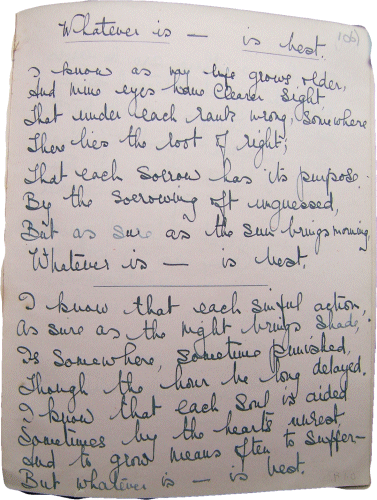 Whatever is — is best.
I know as my life grows older,
And mine eyes have clearer sight,
That under each rank wrong, somewhere
There lies the root of right;
That each sorrow has its purpose.
By the sorrowing oft unguessed,
But as sure as the sun brings morning,
Whatever is — is best.
I know that each sinful action,
As sure as the night brings shade,
Is somewhere, sometime punished,
Though the hour be long delayed.
I know that each soul is aided
Sometimes by the hearts unrest
And to grow means often to suffer—
But whatever is — is best.